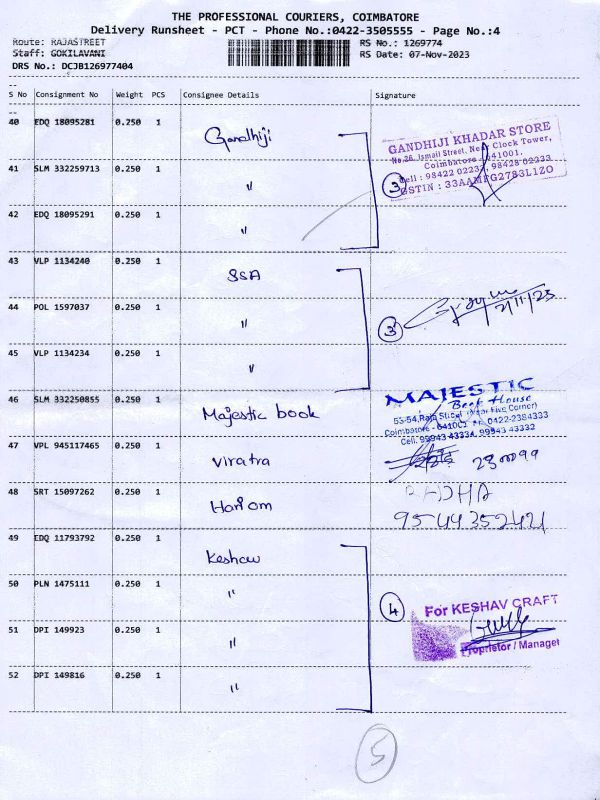 THE PROFESSIONAL COURIERS, COIMBATORE
Delivery Runsheet - PCT - Phone No.:0422-3505555 - Page No.:4
Route: RAJASTREET
RS No.: 1269774
Staff: GOKILAVANI
RS Date: 07-Nov-2023
DRS No.: DCJB126977404
S No Consignment No Weight PCS Consignee Details Signature
40 EDQ 18095281 0.250 1 Gandhiji
GANDHIJI KHADAR STORE
No.26, Ismail Street, Near Clock Tower,
Coimbatore - 641001.
Cell : 98422 02233, 98428 02233
GSTIN : 33AAMFG2783L1ZO
41 SLM 332259713 0.250 1 "
3
42 EDQ 18095291 0.250 1 "
43 VLP 1134240 0.250 1 SSA
44 POL 1597037 0.250 1 "
3
45 VLP 1134234 0.250 1 "
46 SLM 332250855 0.250 1 Majestic book
MAJESTIC
Book House
53-54, Raja Street (Near Five Corner)
Coimbatore - 641001 Ph: 0422-2384333
Cell: 99943 43334, 99943 43332
47 VPL 945117465 0.250 1 Viratra
48 SRT 15097262 0.250 1 Hariom
RADHA
49 EDQ 11793792 0.250 1 Keshav
50 PLN 1475111 0.250 1 "
4
For KESHAV CRAFT
Proprietor / Manager
51 DPI 149923 0.250 1 "
52 DPI 149816 0.250 1 "
5